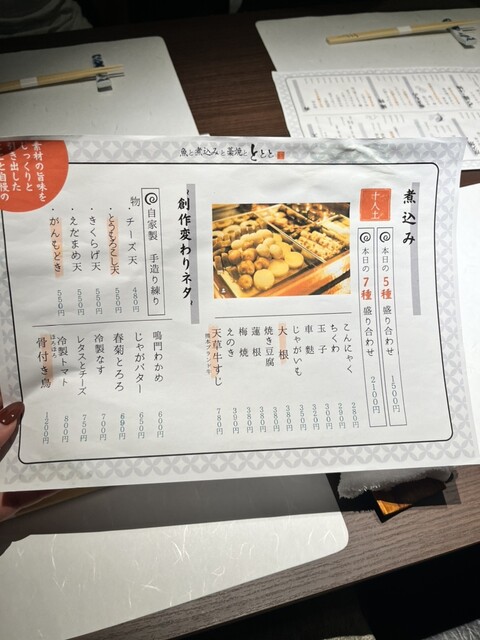 魚と煮込みと藁焼と ととと
煮込み
本日の5種盛り合わせ 1500円
本日の7種盛り合わせ 2100円
こんにゃく 280円
ちくわ 290円
玉子 300円
車麩 320円
じゃがいも 350円
大根 380円
焼き豆腐 380円
蓮根 380円
梅焼 380円
えのき 390円
天草牛すじ 780円
熊本ブランド牛
創作変わりネタ
自家製 手造り練り
物
・チーズ天 480円
・とうもろこし天 550円
・きくらげ天 550円
・えだまめ天 550円
がんもどき 550円
鳴門わかめ 600円
じゃがバター 650円
春菊とろろ 690円
冷製なす 700円
レタスとチーズ 750円
冷製トマト 800円
ほろほろ
骨付き鳥 1200円
素材の旨味を
じっくりと
引き出した